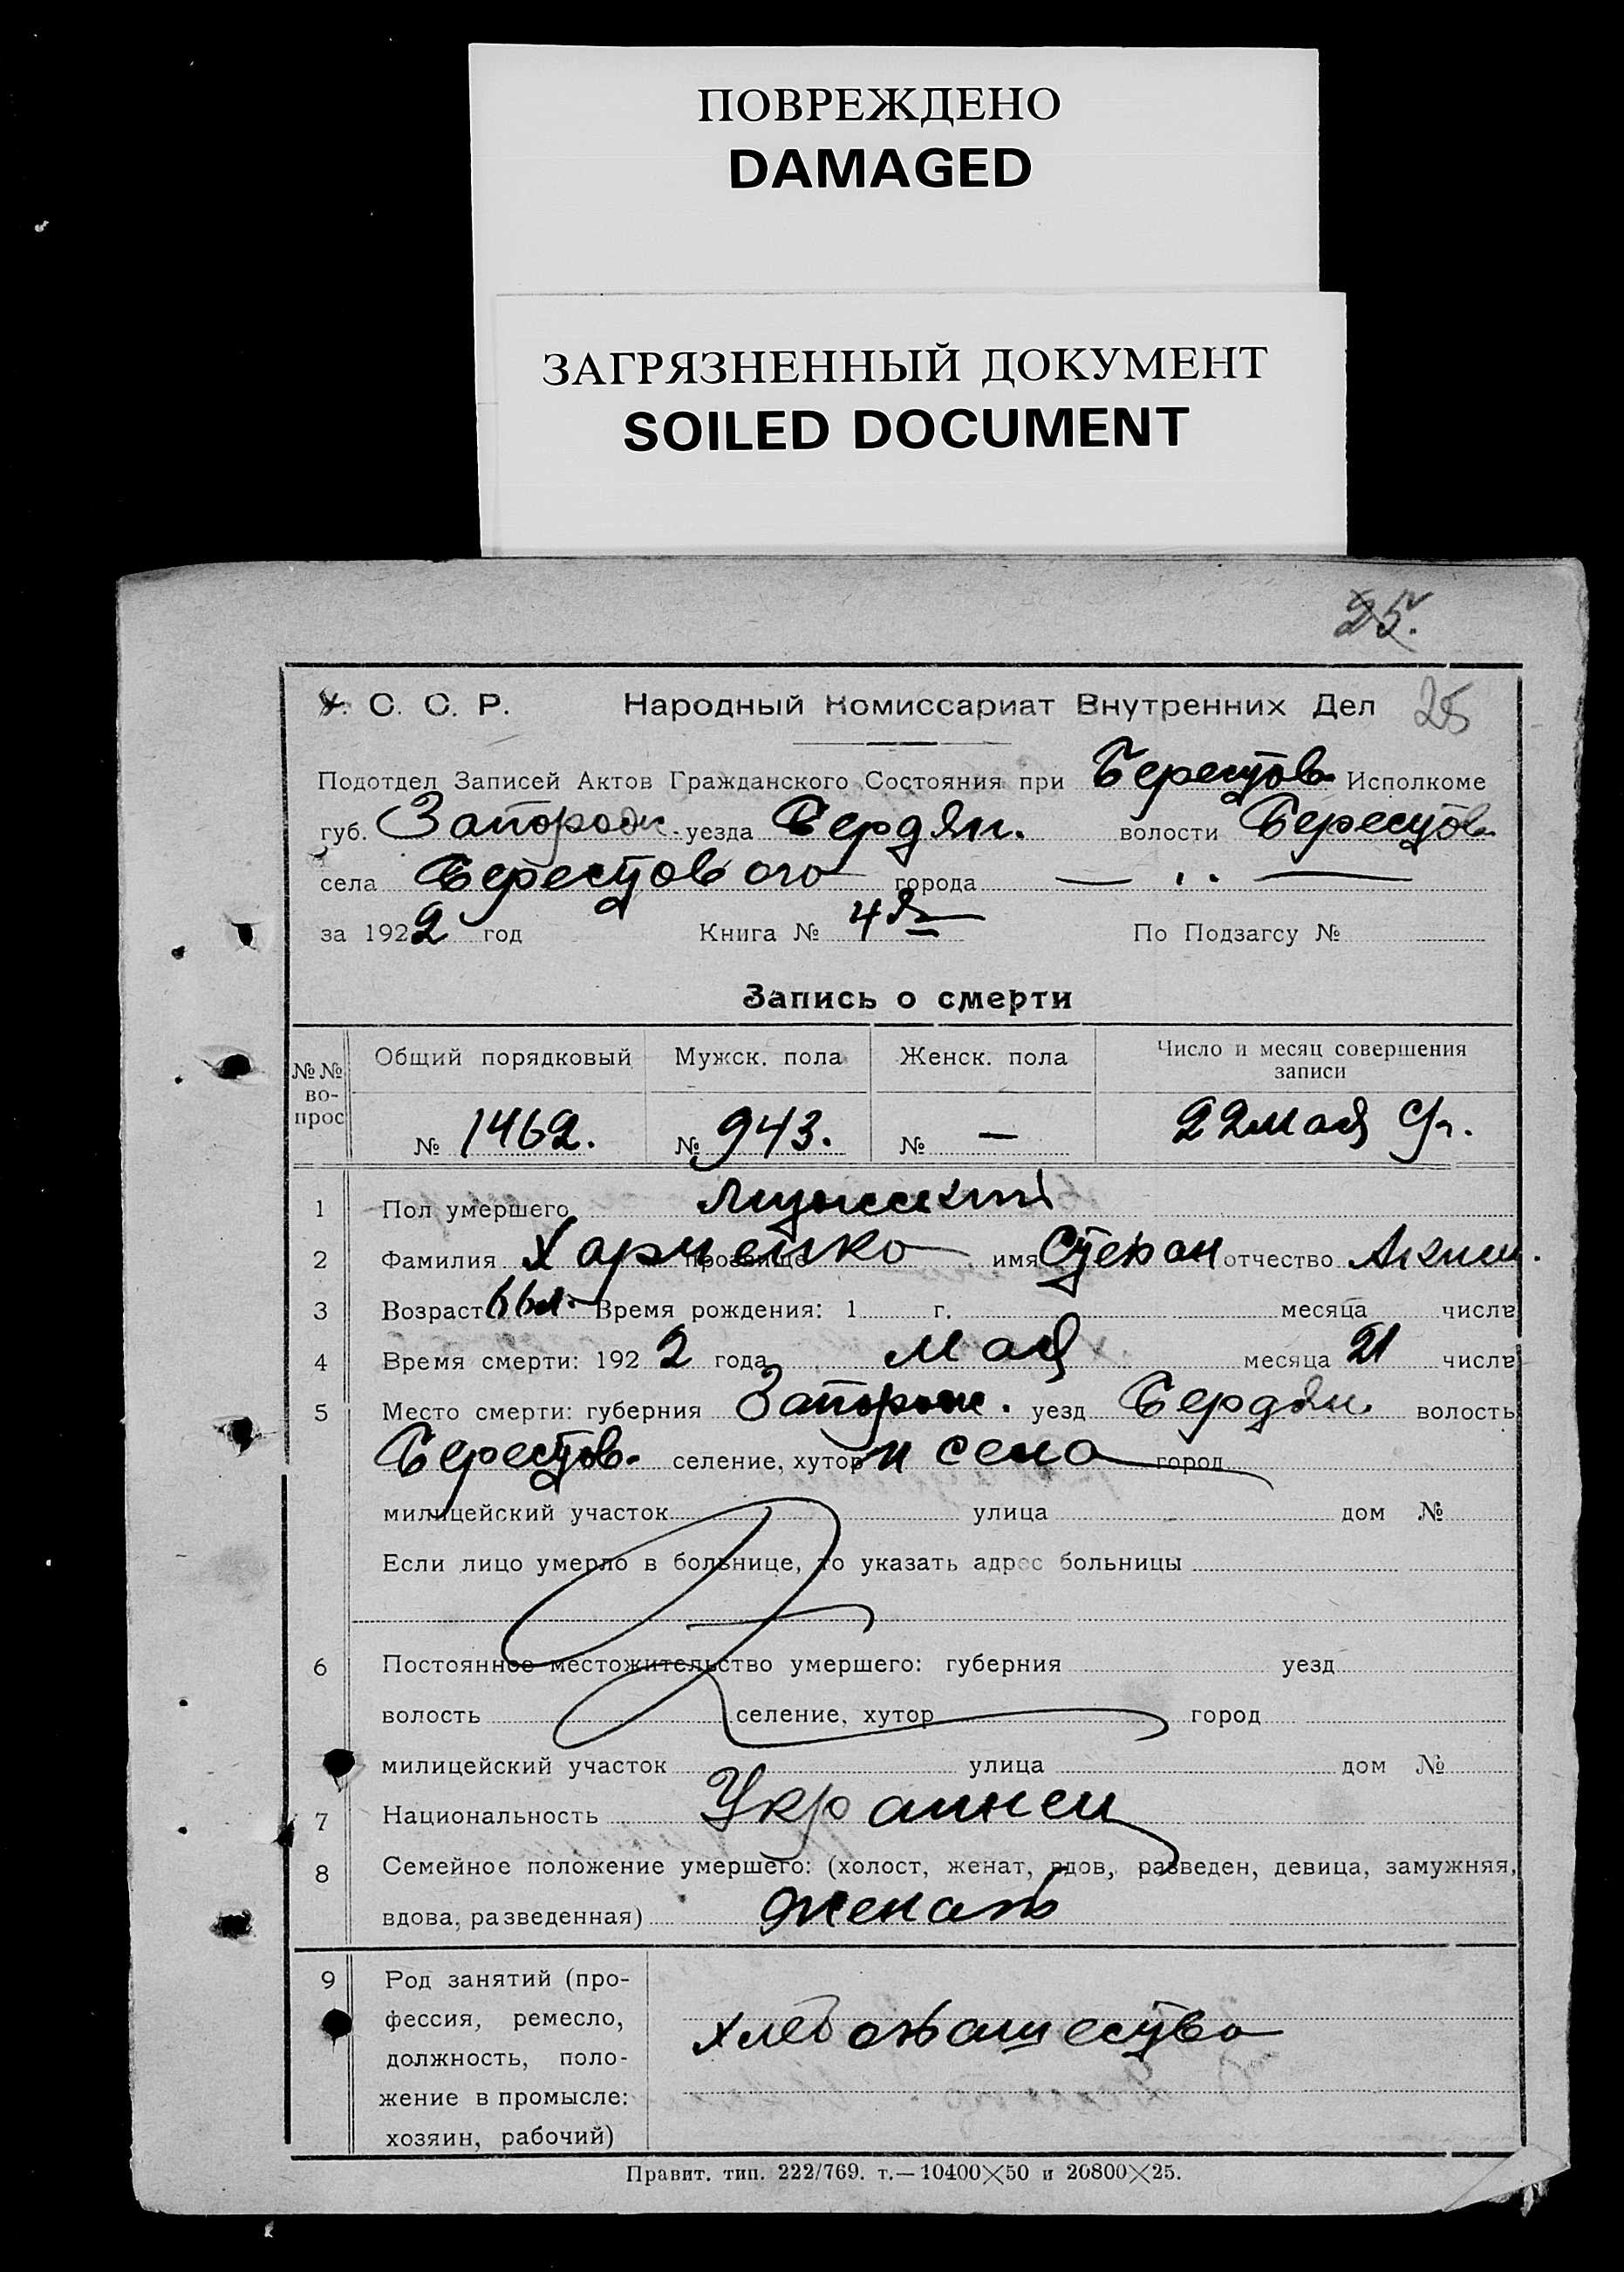 ПОВРЕЖДЕНО
DAMAGED
ЗАГРЯЗНЕННЫЙ ДОКУМЕНТ
SOILED DOCUMENT
25.
У. С. С. Р. Народный Комиссариат Внутренних Дел 25
Подотдел Записей Актов Гражданского Состояния при Берестов. Исполкоме
губ. Запорож. уезда Бердян. волости Берестов.
села Берестового города — . . —
за 1922 год Книга № 4я По Подзагсу №
Запись о смерти
№№ во-прос Общий порядковый Мужск. пола Женск. пола Число и месяц совершения записи
№ 1462. № 943. № — 22 мая с/г.
1 Пол умершего мужский
2 Фамилия Харченко прозвище имя Стефан отчество Аким.
3 Возраст 66 л. Время рождения: 1 г. месяца числа
4 Время смерти: 1922 года мая месяца 21 числа
5 Место смерти: губерния Запорож. уезд Бердян. волость
Берестов. селение, хутор и села город
милицейский участок улица дом №
Если лицо умерло в больнице, то указать адрес больницы
6 Постоянное местожительство умершего: губерния уезд
волость селение, хутор город
милицейский участок улица дом №
7 Национальность Украинец
8 Семейное положение умершего: (холост, женат, вдов, разведен, девица, замужняя,
вдова, разведенная) женатъ
9 Род занятий (про-
фессия, ремесло,
должность, поло-
жение в промысле:
хозяин, рабочий)
хлебопашество
Правит. тип. 222/769. т.—10400×50 и 20800×25.